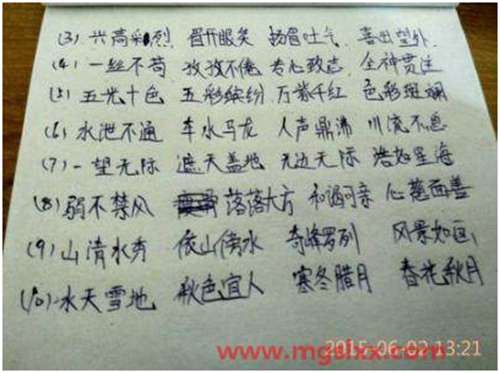 (3) 兴高彩烈 眉开眼笑 扬眉吐气 喜出望外
(4) 一丝不苟 孜孜不倦 专心致志 全神贯注
(5) 五光十色 五彩缤纷 万紫千红 色彩斑斓
(6) 水泄不通 车水马龙 人声鼎沸 川流不息
(7) 一望无际 遮天盖地 无边无际 浩如星海
(8) 弱不禁风 落落大方 和谒可亲 心慈面善
(9) 山清水秀 依山傍水 奇峰罗列 风景如画
(10) 水天雪地 秋色宜人 寒冬腊月 春花秋月
2015-06-02 13:21
www.mgslxx.com